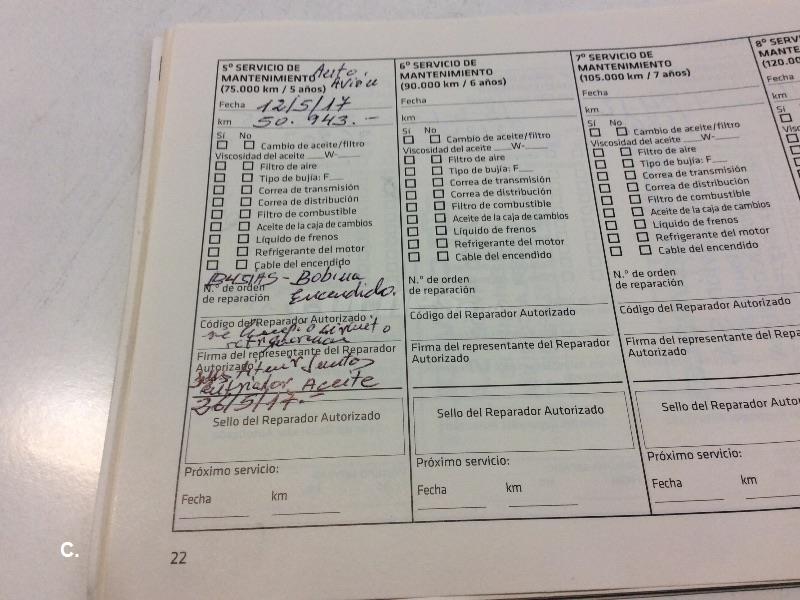 5º SERVICIO DE
MANTENIMIENTO Auto.
(75.000 km / 5 años)
Fecha 12/5/17
km 50.943.-
Sí No
Cambio de aceite/filtro
Viscosidad del aceite ___W-___
Filtro de aire
Tipo de bujía: F___
Correa de transmisión
Correa de distribución
Filtro de combustible
Aceite de la caja de cambios
Líquido de frenos
Refrigerante del motor
Cable del encendido
BUJIAS - Bobina
N.º de orden
de reparación Encendido.
Código del Reparador Autorizado
Firma del representante del Reparador
Autorizado
enfriador Aceite
26/5/17.-
Sello del Reparador Autorizado
Próximo servicio:
Fecha km
6º SERVICIO DE
MANTENIMIENTO
(90.000 km / 6 años)
Fecha
km
Sí No
Cambio de aceite/filtro
Viscosidad del aceite ___W-___
Filtro de aire
Tipo de bujía: F___
Correa de transmisión
Correa de distribución
Filtro de combustible
Aceite de la caja de cambios
Líquido de frenos
Refrigerante del motor
Cable del encendido
N.º de orden
de reparación
Código del Reparador Autorizado
Firma del representante del Reparador
Autorizado
Sello del Reparador Autorizado
Próximo servicio:
Fecha km
7º SERVICIO DE
MANTENIMIENTO
(105.000 km / 7 años)
Fecha
km
Sí No
Cambio de aceite/filtro
Viscosidad del aceite ___W-___
Filtro de aire
Tipo de bujía: F___
Correa de transmisión
Correa de distribución
Filtro de combustible
Aceite de la caja de cambios
Líquido de frenos
Refrigerante del motor
Cable del encendido
N.º de orden
de reparación
Código del Reparador Autorizado
Firma del representante del Reparador
Autorizado
Sello del Reparador Autorizado
Próximo servicio:
Fecha km
8º SERV
MANTE
(120.00
Fecha
km
Sí
Visco
N.º
de
Có
Fir
A
C.
22